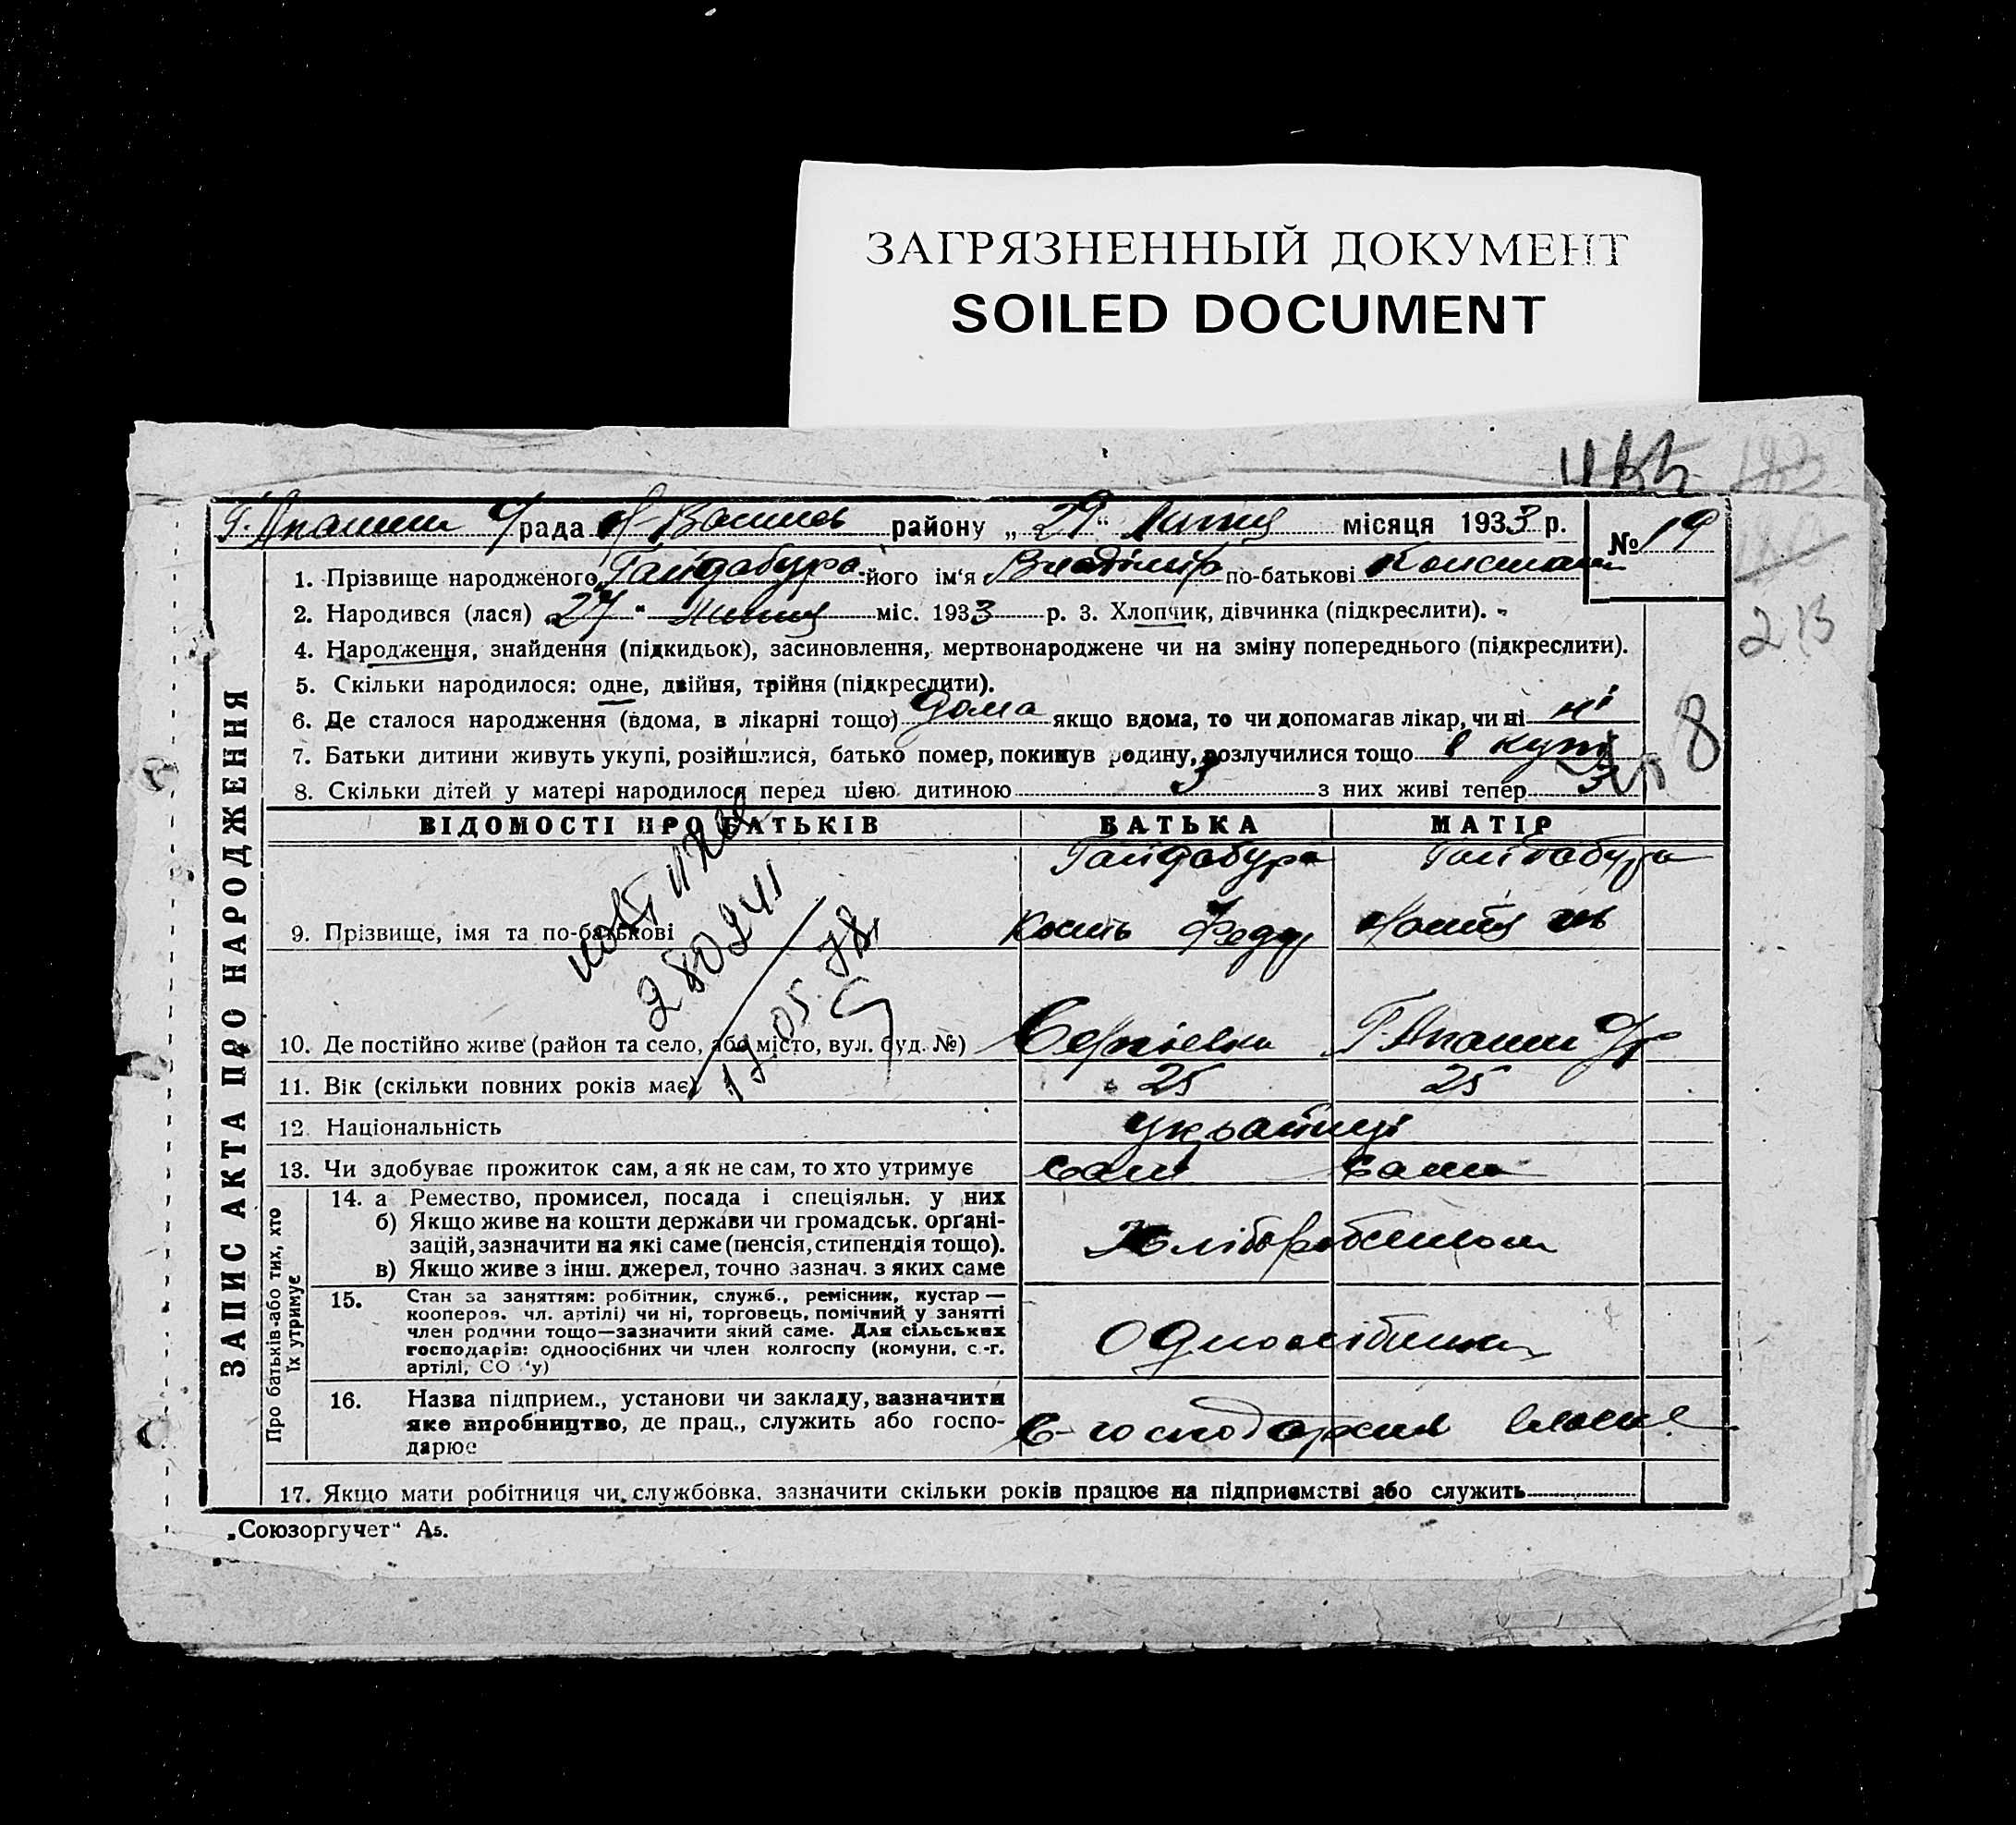 ЗАГРЯЗНЕННЫЙ ДОКУМЕНТ
SOILED DOCUMENT
183
213
рада району „29“ Липця місяця 1933 р.
№ 19
1. Прізвище народженого Гайдабура його ім‘я Владімір по-батькові Констан
2. Народився (лася) „27“ Липця міс. 1933 р. 3. Хлопчик, дівчинка (підкреслити).
4. Народження, знайдення (підкидьок), засиновлення, мертвонароджене чи на зміну попереднього (підкреслити).
5. Скільки народилося: одне, двійня, трійня (підкреслити).
6. Де сталося народження (вдома, в лікарні тощо) дома якщо вдома, то чи допомагав лікар, чи ні ні
7. Батьки дитини живуть укупі, розійшлися, батько помер, покинув родину, розлучилися тощо в купі
8. Скільки дітей у матері народилося перед цією дитиною 3 з них живі тепер 3
8
ЗАПИС АКТА ПРО НАРОДЖЕННЯ
ВІДОМОСТІ ПРО БАТЬКІВ БАТЬКА МАТІР
Гайдабура Гайдабура
9. Прізвище, імя та по-батькові Кость Федор
280241
17.05.78
10. Де постійно живе (район та село, або місто, вул. буд. №)
11. Вік (скільки повних років має) 25 25
12 Національність Українці
13. Чи здобуває прожиток сам, а як не сам, то хто утримує сам сама
Про батьків або тих, хто їх утримує
14. а Ремество, промисел, посада і спеціяльн. у них
б) Якщо живе на кошти держави чи громадськ. органі-
зацій, зазначити на які саме (пенсія, стипендія тощо).
в) Якщо живе з інш. джерел, точно зазнач. з яких саме
Хліборобством
15. Стан за заняттям: робітник, служб., ремісник, кустар —
кооперов. чл. артілі) чи ні, торговець, помічний у занятті
член родини тощо—зазначити який саме. Для сільських
господарів: одноосібних чи член колгоспу (комуни, с.-г.
артілі, СО ‘у)
Одноосібники
16. Назва підприєм., установи чи закладу, зазначити
яке виробництво, де прац., служить або госпо-
дарює
17. Якщо мати робітниця чи службовка, зазначити скільки років працює на підприємстві або служить
„Союзоргучет“ А5.